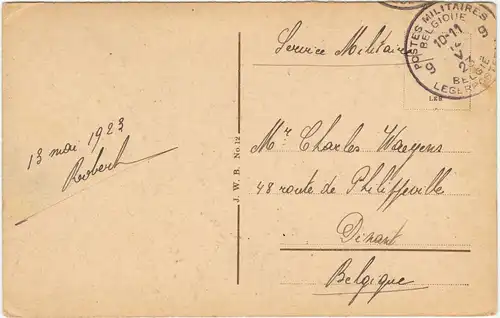 Service Militaire
POSTES MILITAIRES
BELGIQUE
9 9
10-11
V
23
BELGIE
LEGERPOSTERIJ
L&B
13 mai 1923
Robert
J. W. B. No. 12
Mr Charles Waegens
48 route de Philippeville
Dinant
Belgique